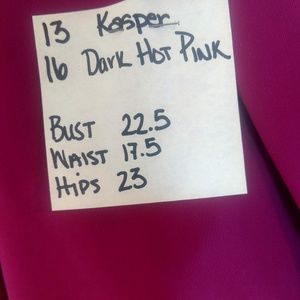 13 Kasper
16 Dark Hot Pink
Bust 22.5
Waist 17.5
Hips 23